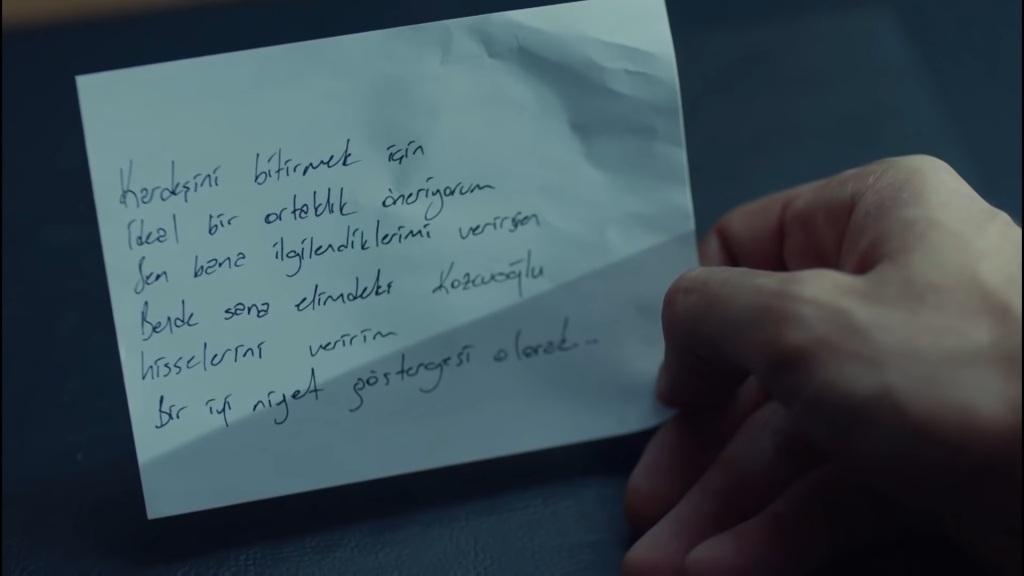 Kardeşini bitirmek için
ideal bir ortaklık öneriyorum
Sen bana ilgilendiklerimi verirsen
Bende sana elimdeki Kozcuoğlu
hisselerini veririm
Bir iyi niyet göstergesi olarak...